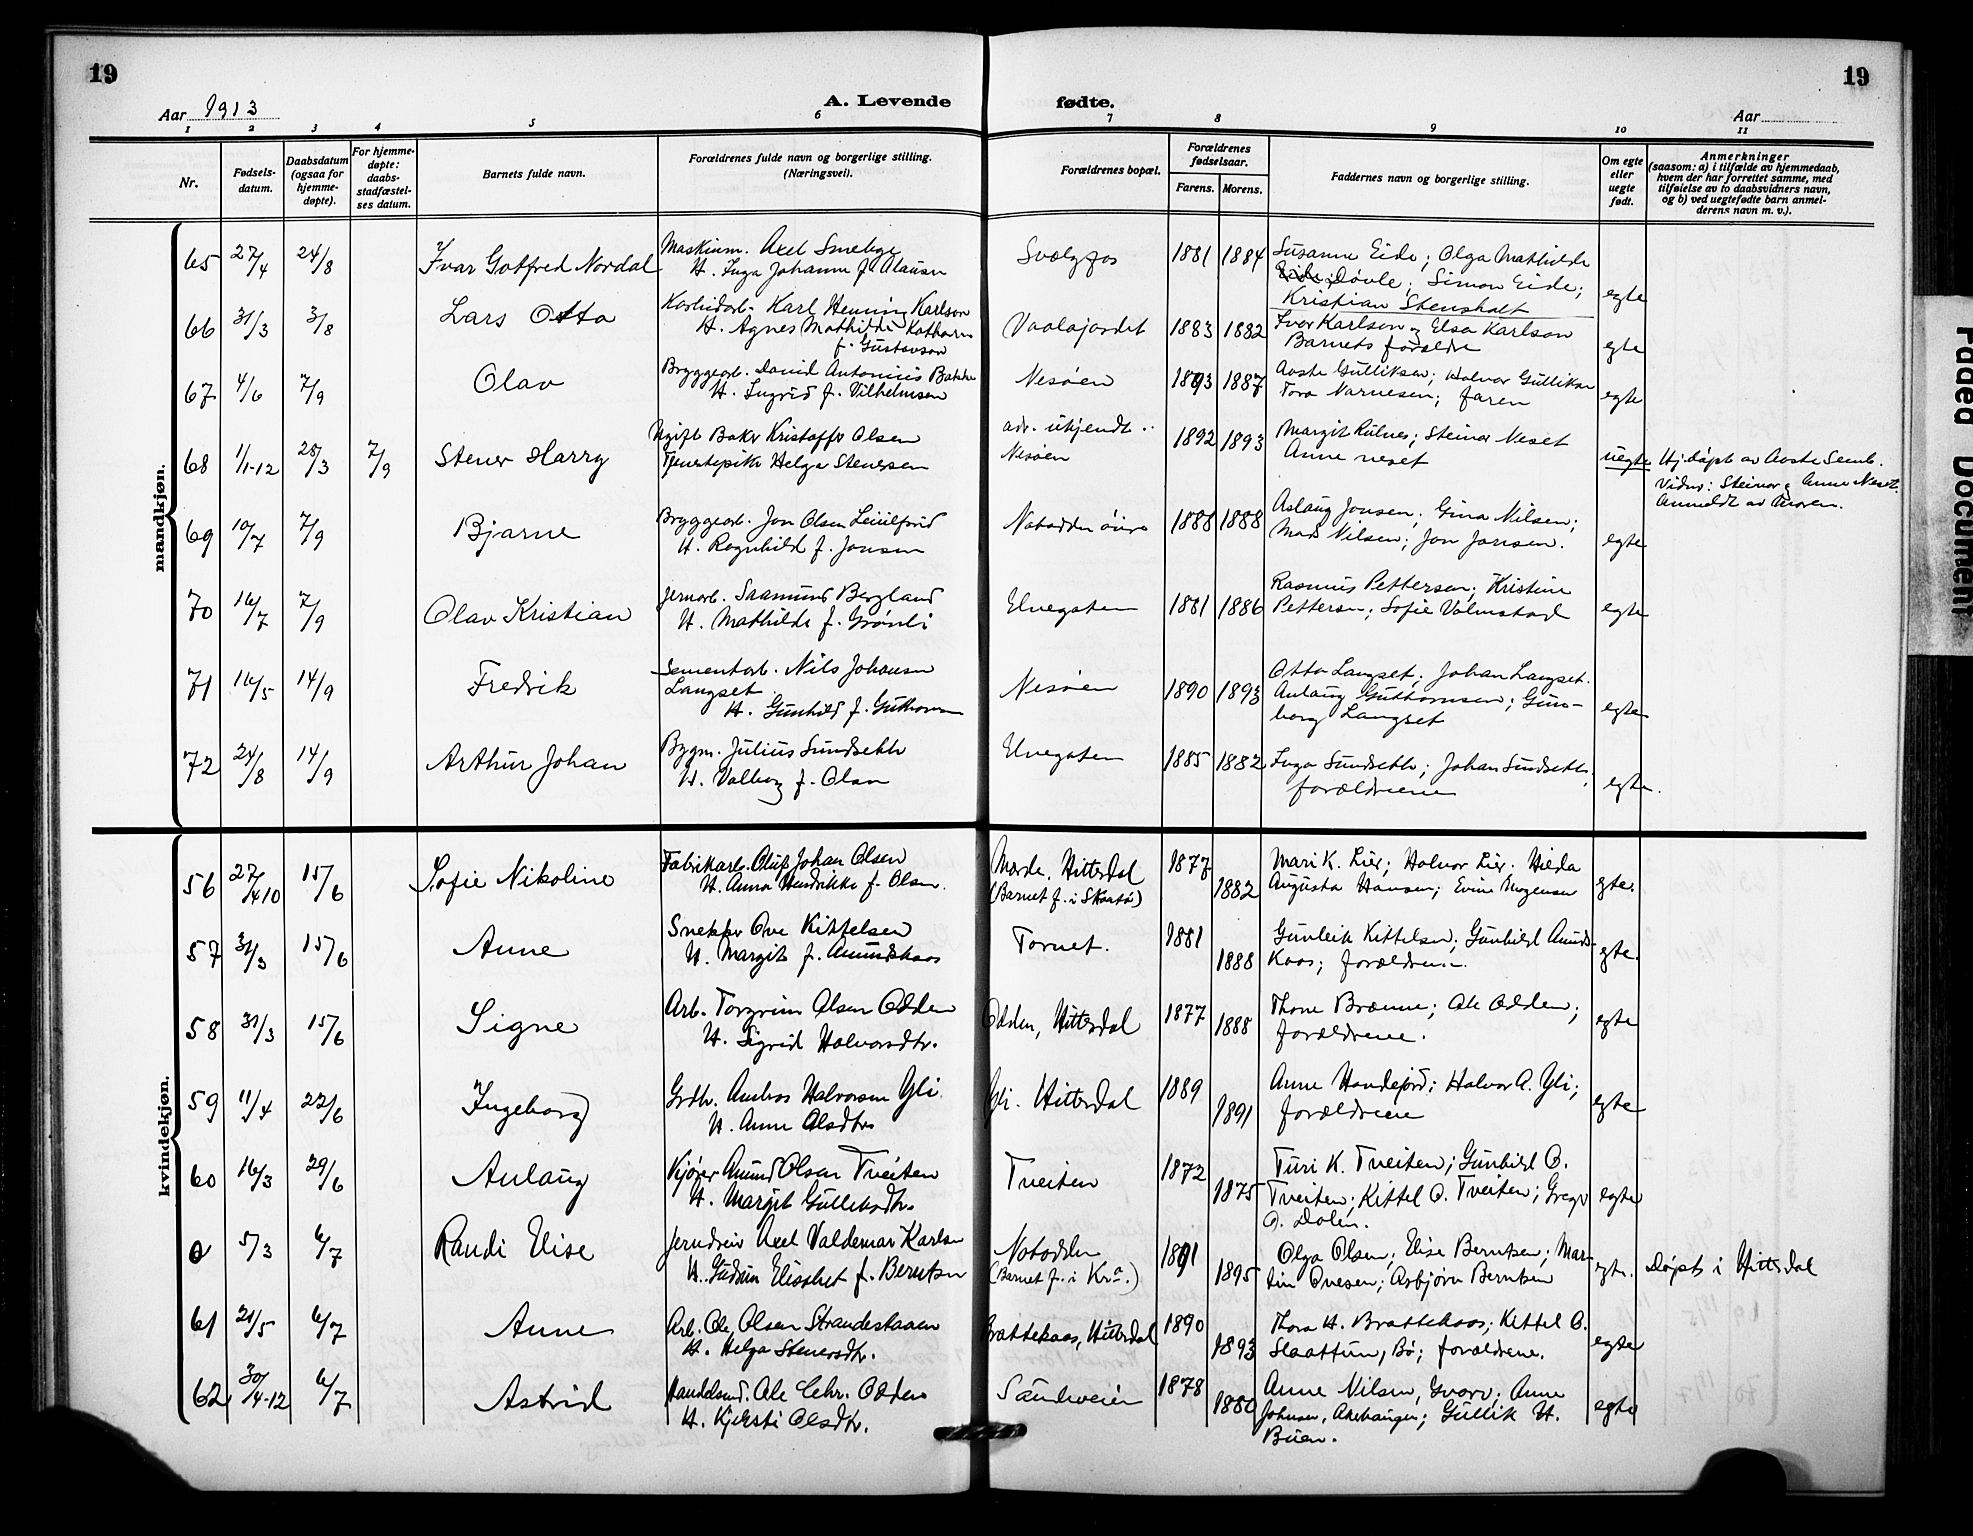 19
19
Aar 1913
A. Levende fødte.
Aar
1 2 3 4 5 6 7 8 9 10 11
Nr.
Fødsels-
datum.
Daabsdatum
(ogsaa for
hjemme-
døpte).
For hjemme-
døpte:
daabs-
stadfæstel-
ses datum.
Barnets fulde navn.
Forældrenes fulde navn og borgerlige stilling.
(Næringsvei).
Forældrenes bopæl.
Forældrenes
fødselsaar.
Farens. Morens.
Faddernes navn og borgerlige stilling.
Om egte
eller
uegte
født.
Anmerkninger
(saasom: a) i tilfælde av hjemmedaab,
hvem der har forrettet samme, med
tilføielse av to daabsvidners navn,
og b) ved uegtefødte barn anmel-
derens navn m. v.).
mandkjøn.
65 27/4 24/8 Ivar Gotfred Nordal
Maskinm. Axel Smebye
H. Inga Johanne f. Clausen
Svælgfos 1881 1884
Susanne Eide; Olga Mathilde
Døvle; Simon Eide;
Kristian Stensholt
egte
66 31/3 3/8 Lars Otto
Karl Hening Karlson
H. Agnes Mathilde Kathar
f. Gustavson
Vaalajordet 1883 1882
Ivar Karlson, Elsa Karlson
Barnets forældre
egte
67 4/6 7/9 Olav
Bryggearb. David Antonius
H. Ingrid f. Vilhelmsen
Nesøen 1893 1887
Aaste Gulliksen; Halvor Gulliksen
Tora Narnesen; faren
egte
68 1/1-12 25/3 7/9 Stener Harry
Ugift Baker Kristoffer Olsen
Tjenestepike Helga Stenersen
adr. ukjendt..
Nesøen
1892 1893
Margit Rulnes; Steinar Neset
Anne Neset
uegte
Hj.døpt av Aaste Semb.
Vidner: Steinar & Anne Neset.
Anmeldt av Moren.
69 10/7 7/9 Bjarne
Bryggearb. Jon Olsen
H. Ragnhild f. Jonsen
Notodden øvre 1888 1888
Aslaug Jonsen; Gina Nilsen;
Mads Nilsen; Jon Jonsen.
egte
70 16/7 7/9 Olav Kristian
Jernarb. Saamund Bergland
H. Mathilde f. Grønli
Elvegaten 1881 1886
Rasmus Pettersen; Kristine
Pettersen; Sofie Valmstad
egte
71 16/5 14/9 Fredrik
Sementarb. Nils Johansen
Langset
H. Gunhild f. Guthormsen
Nesøen 1890 1893
Otto Langset; Johan Langset.
Aslaug Guttormsen; Gun-
borg Langset
egte
72 24/8 14/9 Arthur Johan
Bygm. Julius Sundseth
H. Valborg f. Olsen
Elvegaten 1885 1882
Inga Sundseth; Johan Sundseth;
forældrene
egte.
kvindekjøn.
56 27/4 10 15/6 Sofie Nikoline
Fabrikarb. Oluf Johan Olsen
H. Anna Hendrikke f. Olsen.
Morde, Hitterdal
(Barnet f. i Skaatø)
1877 1882
Mari K. Lier; Halvor Lier. Hilda
Augusta Hansen; Even Mogensen
egte.
57 31/3 15/6 Anne
Snekker Ove Kittelsen
H. Margit f. Amundskaas
Tornet. 1881 1888
Gunleik Kittelsen; Gunhild Amunds-
Kaas; forældrene.
egte.
58 31/3 15/6 Signe
Arb. Torgrim Olsen Odden
H. Sigrid Halvorsdtr.
Odden, Hitterdal 1877 1888
Thone Brænne; Ole Odden;
forældrene.
egte
59 11/4 22/6 Ingeborg
Grdbr. Andres Halvorsen Yli
H. Anne Olsdtr.
Yli. Hitterdal 1889 1891
Anne Handejord; Halvor A. Yli;
forældrene
egte
60 16/3 29/6 Aslaug
Kjører Amund Olsen Tveiten
H. Margit Gulleksdtr.
Tveiten 1872 1875
Turi K. Tveiten; Gunhild O.
Tveiten; Kittel O. Tveiten; Gregar
O. Dalen.
egte
0 5/3 6/7 Randi Elise
Jerndreier Axel Valdemar Karlsen
H. Gudrun Elisabet f. Berntsen
Notodden
(Barnet f. i Kra.)
1891 1895
Olga Olsen; Elise Berntsen; Mar-
tin Ovesen; Asbjørn Berntsen
egte.
Døpt i Hitterdal
61 21/5 6/7 Anne
Arb. Ole Olsen Strandestaaen
H. Helga Stenersdtr.
Brattekaas, Hitterdal 1890 1893
Thora H. Brattekaas; Kittel O.
Slaattun, Bø; forældrene.
egte
62 30/4-12 6/7 Astrid
Handelsmd. Ole Chr. Odden
H. Kjersti Olsdtr.
Sandveien 1878 1880
Anne Nilsen, Gvarv; Anne
Johnsen, Akehaugen; Gullik H.
Buen.
egte
Faded Document